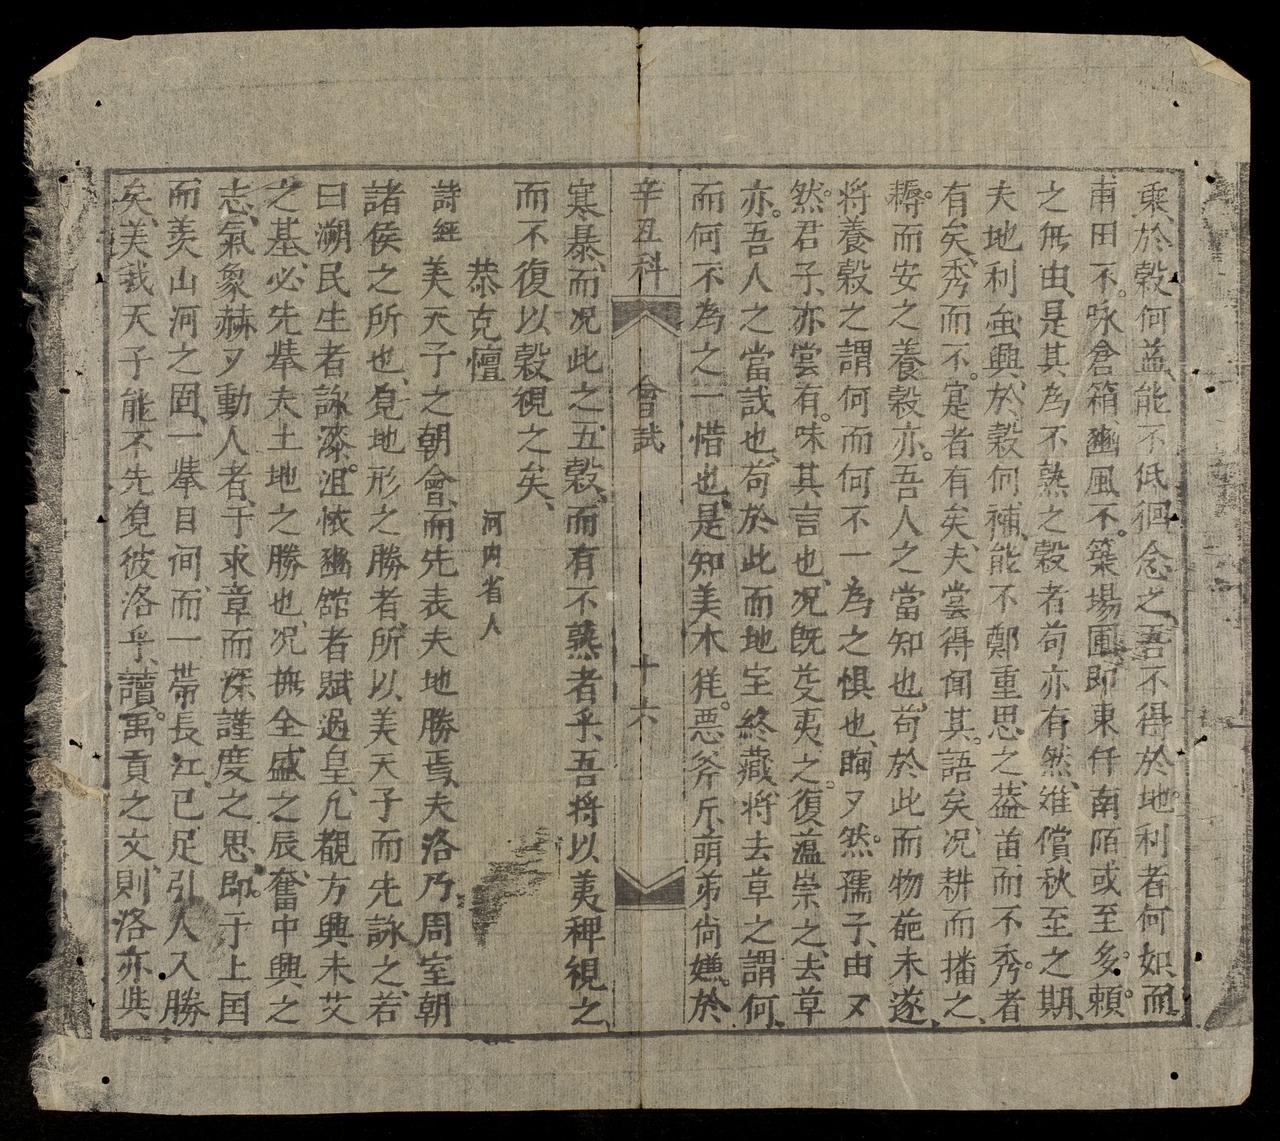 乘於穀何益、能不低徊念之、吾不得於地利者何如、而
南田不。咏倉箱、豳風不。築場圃、即東仟南陌或至。多。賴。
之無由、是其為不熟之穀者、苟亦有然、雖償秋至之期、
夫地利虽興、於穀何補、能不鄭重思之、葢苗而不秀。者
有矣、秀而不。寔者有矣、夫、嘗得闻其。語矣、况耕而播之、
耨。而安之、養穀亦。吾人之當知也、苟於此而物葩未遂、
將養穀之謂何、而何不一為之惧也、晌又然。孺子、由又
然。君子、亦嘗有。味其言也、况既芟夷之。復薀崇之、去草
亦。吾人之當戒也、苟於此而地宝終藏、將去草之謂何、
而何不為之一惜也、是知美木毵。惡斧斤、萌苐尙嫌。於
辛丑科 會試 十六
寒暴、而况此之五穀、而有不熟者乎、吾將以荑稗視之
而不復以穀視之矣、
恭克懀 河內省人
詩經 美天子之朝會、而先表夫地勝焉、夫洛乃周室朝
諸侯之所也、覓地形之勝者、所以美天子而先詠之、若
曰溯民生者詠漆。沮、懷豳舘者賦過皇、凢觀方興未艾
之基、必先舉夫土地之勝也、况撫全盛之辰、奮中興之
志、氣象赫又動人者、于求章而深謹度之思、即。于上囯
而羡山河之固、一舉目间、而一帶長江、已足引人入勝
矣、美我天子能不先覓彼洛乎、讀。禹貢之文、則洛亦與